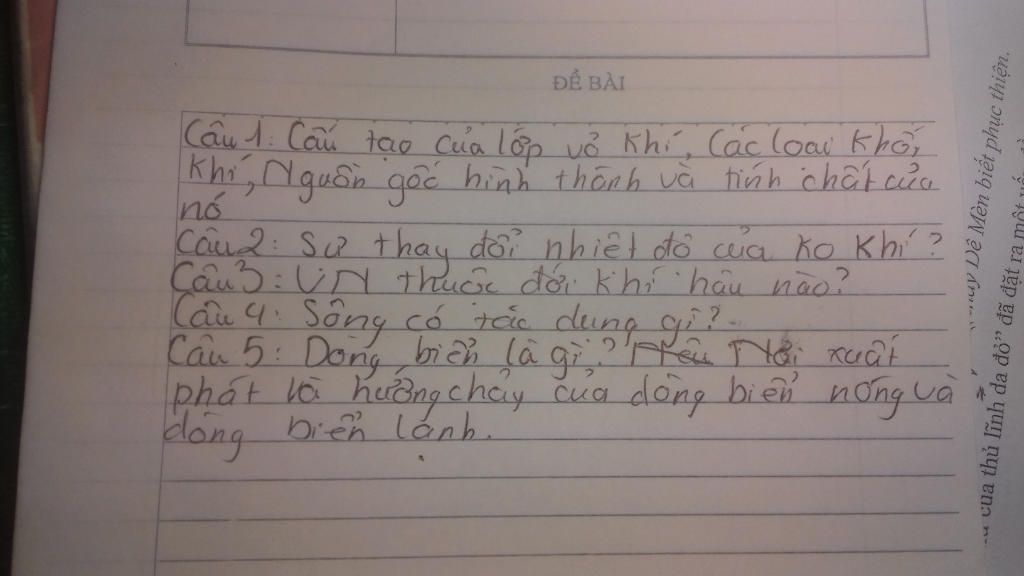 ĐỀ BÀI
Câu 1: Cấu tạo của lớp vỏ khí, Các loại khối
khí, Nguồn gốc hình thành và tính chất của
nó
Câu 2: Sự thay đổi nhiệt độ của ko khí?
Câu 3: VN thuộc đới khí hậu nào?
Câu 4: Sông có tác dụng gì?
Câu 5: Dòng biển là gì? Nơi xuất
phát và hướng chảy của dòng biển nóng và
dòng biển lạnh.
Dế Mèn biết phục thiện.
của thủ lĩnh da đỏ" đã đặt ra một vấn